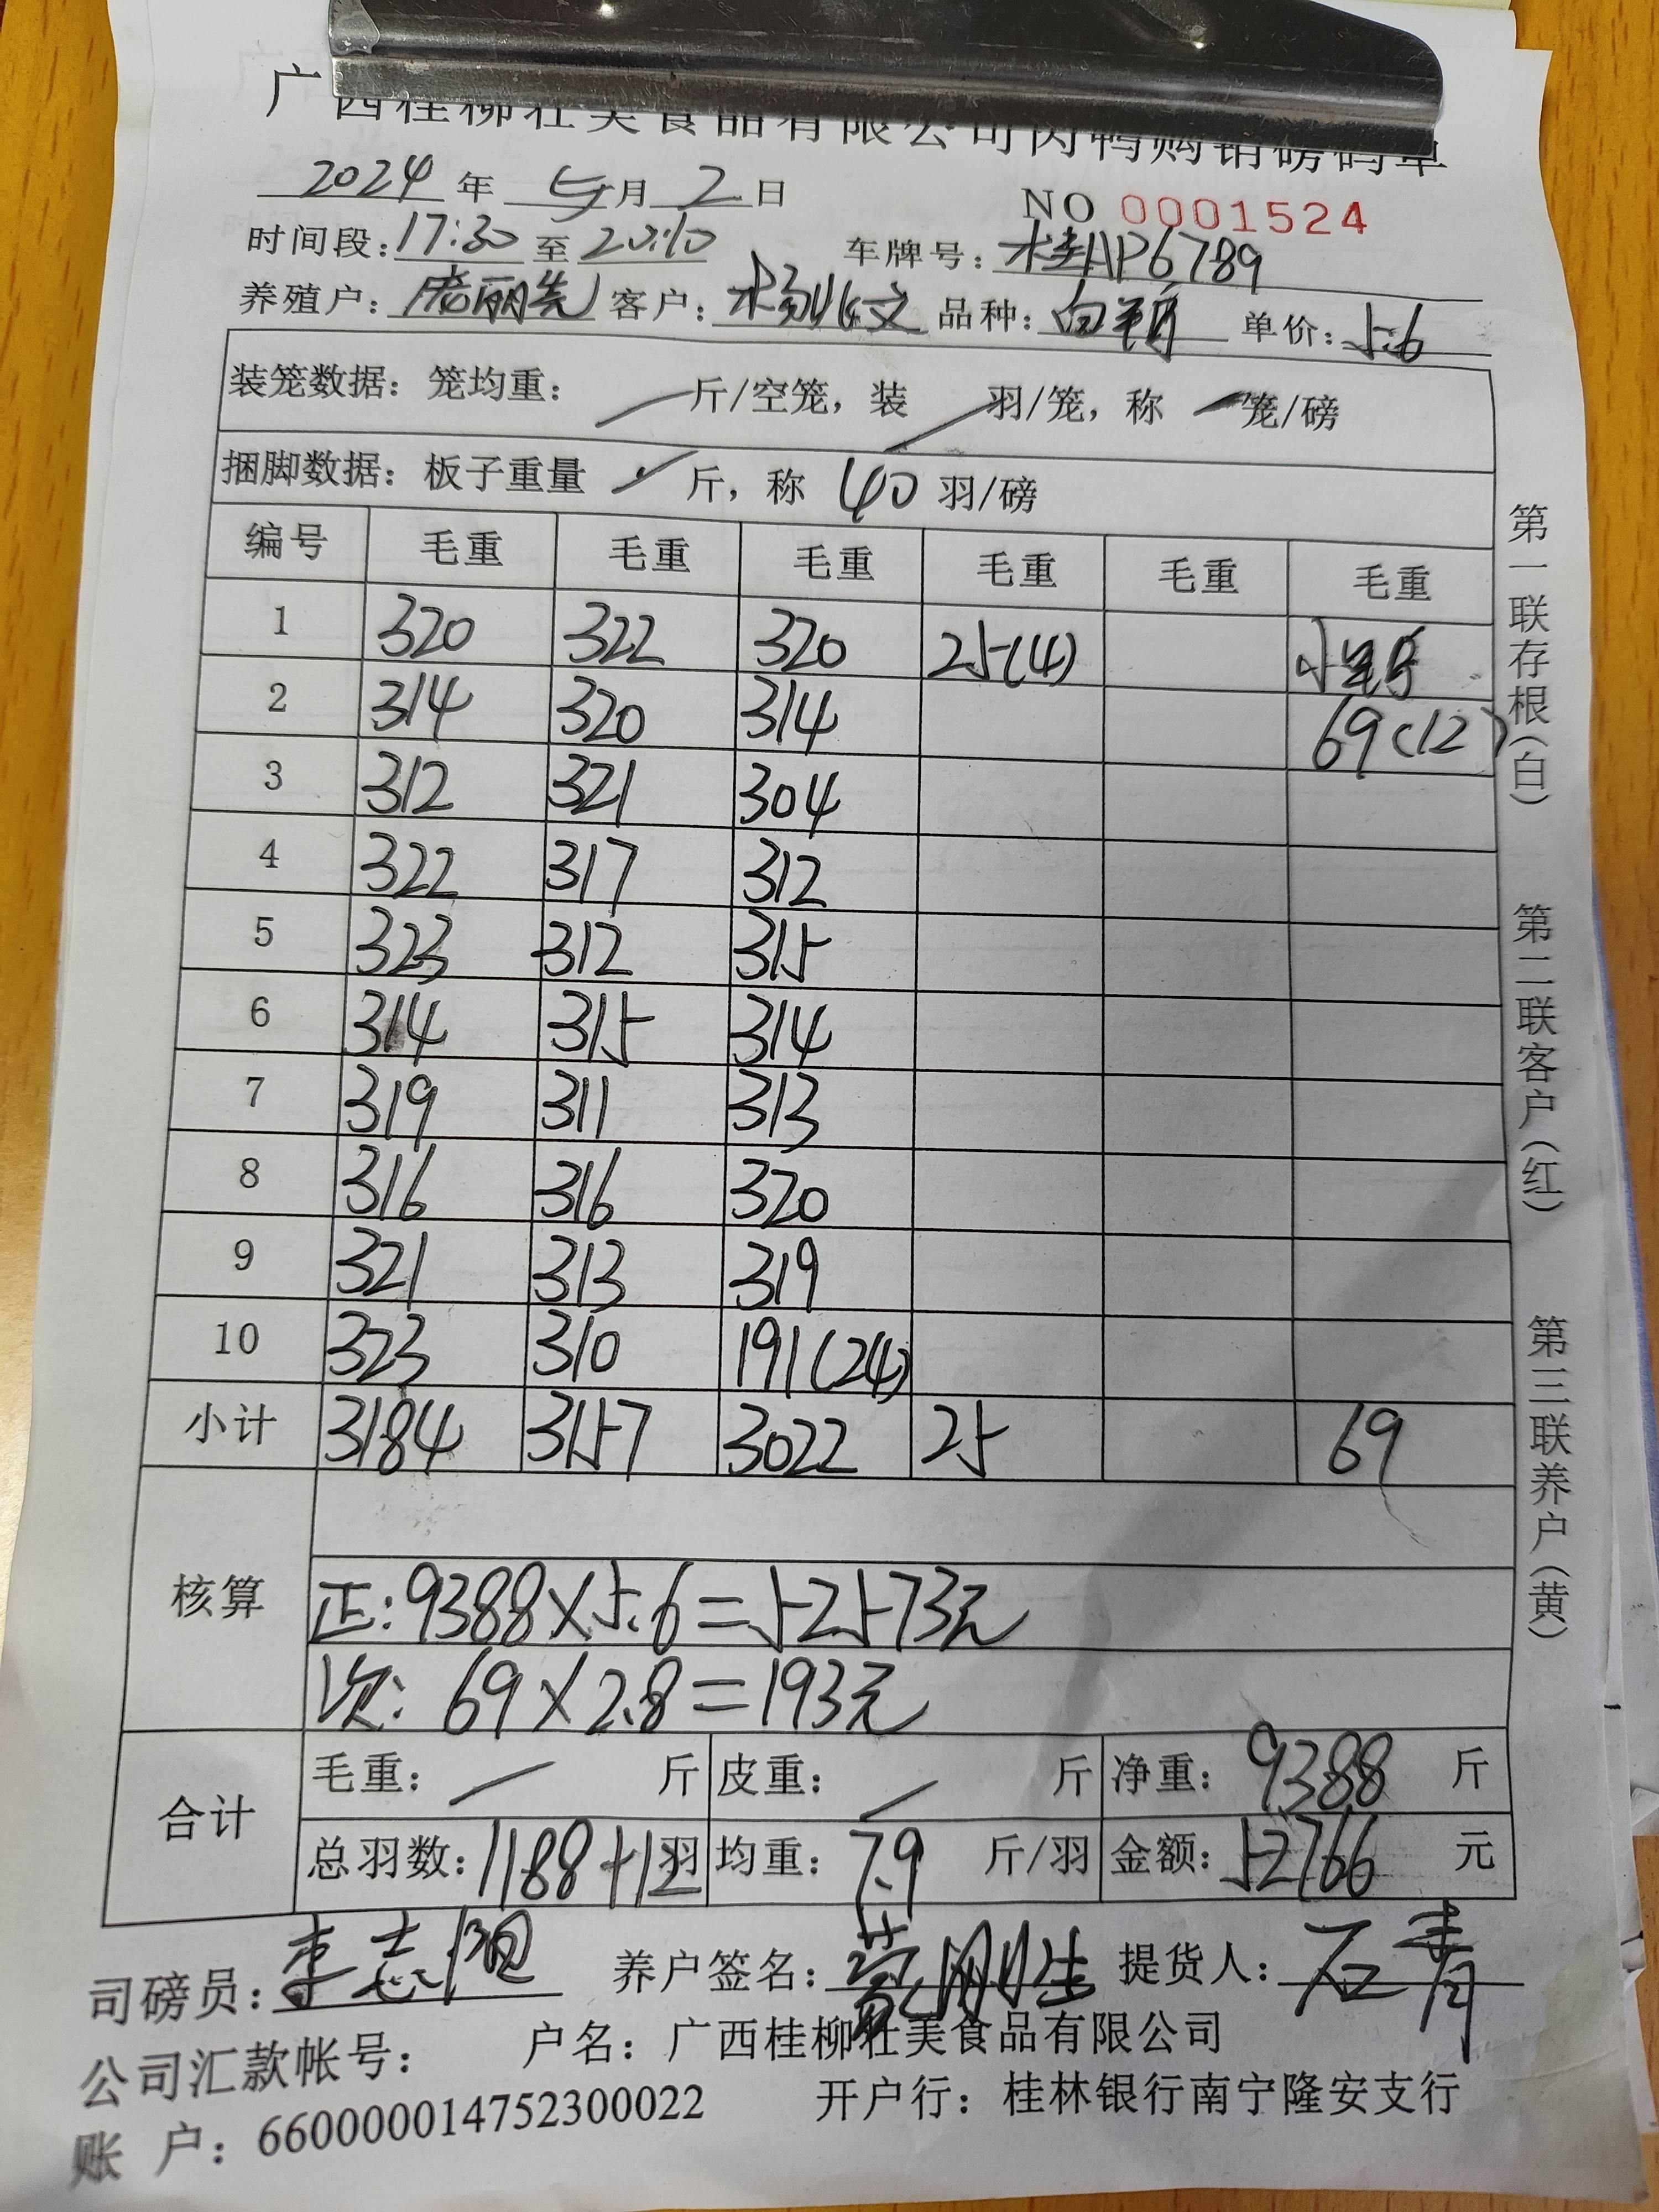 广西桂柳壮美食品有限公司肉鸭购销磅码单
2024年 5月 2日
NO 0001524
时间段:17:30至20:10 车牌号:桂AP6789
养殖户: 客户: 品种: 单价:5.6
装笼数据: 笼均重: 斤/空笼, 装 羽/笼, 称 笼/磅
捆脚数据: 板子重量 斤, 称 40 羽/磅
编号 毛重 毛重 毛重 毛重 毛重 毛重
1 320 322 320 25(4)
2 314 320 314 69(12)
3 312 321 304
4 322 317 312
5 323 312 315
6 314 315 314
7 319 311 313
8 316 316 320
9 321 313 319
10 323 310 191(24)
小计 3184 3157 3022 25 69
核算
正:9388×5.6=52573元
次: 69×2.8=193元
合计
毛重: 斤 皮重: 斤 净重: 9388 斤
总羽数:1188+12羽 均重: 7.9 斤/羽 金额: 52766 元
司磅员: 养户签名: 提货人:石青
公司汇款帐号: 户名: 广西桂柳壮美食品有限公司
账 户: 660000014752300022 开户行: 桂林银行南宁隆安支行
第一联存根(白) 第二联客户(红) 第三联养户(黄)